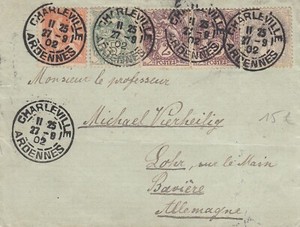 CHARLEVILLE
11 25
27-9
02
ARDENNES
CHARLEVILLE
11 25
27-9
02
ARDENNES
CHARLEVILLE
11 25
27-9
02
ARDENNES
CHARLEVILLE
11 25
27-9
02
ARDENNES
Monsieur le professeur
CHARLEVILLE
11 25
27-9
02
ARDENNES
Michael Vierheilig
Lohr, sur le Main
Bavière
Allemagne